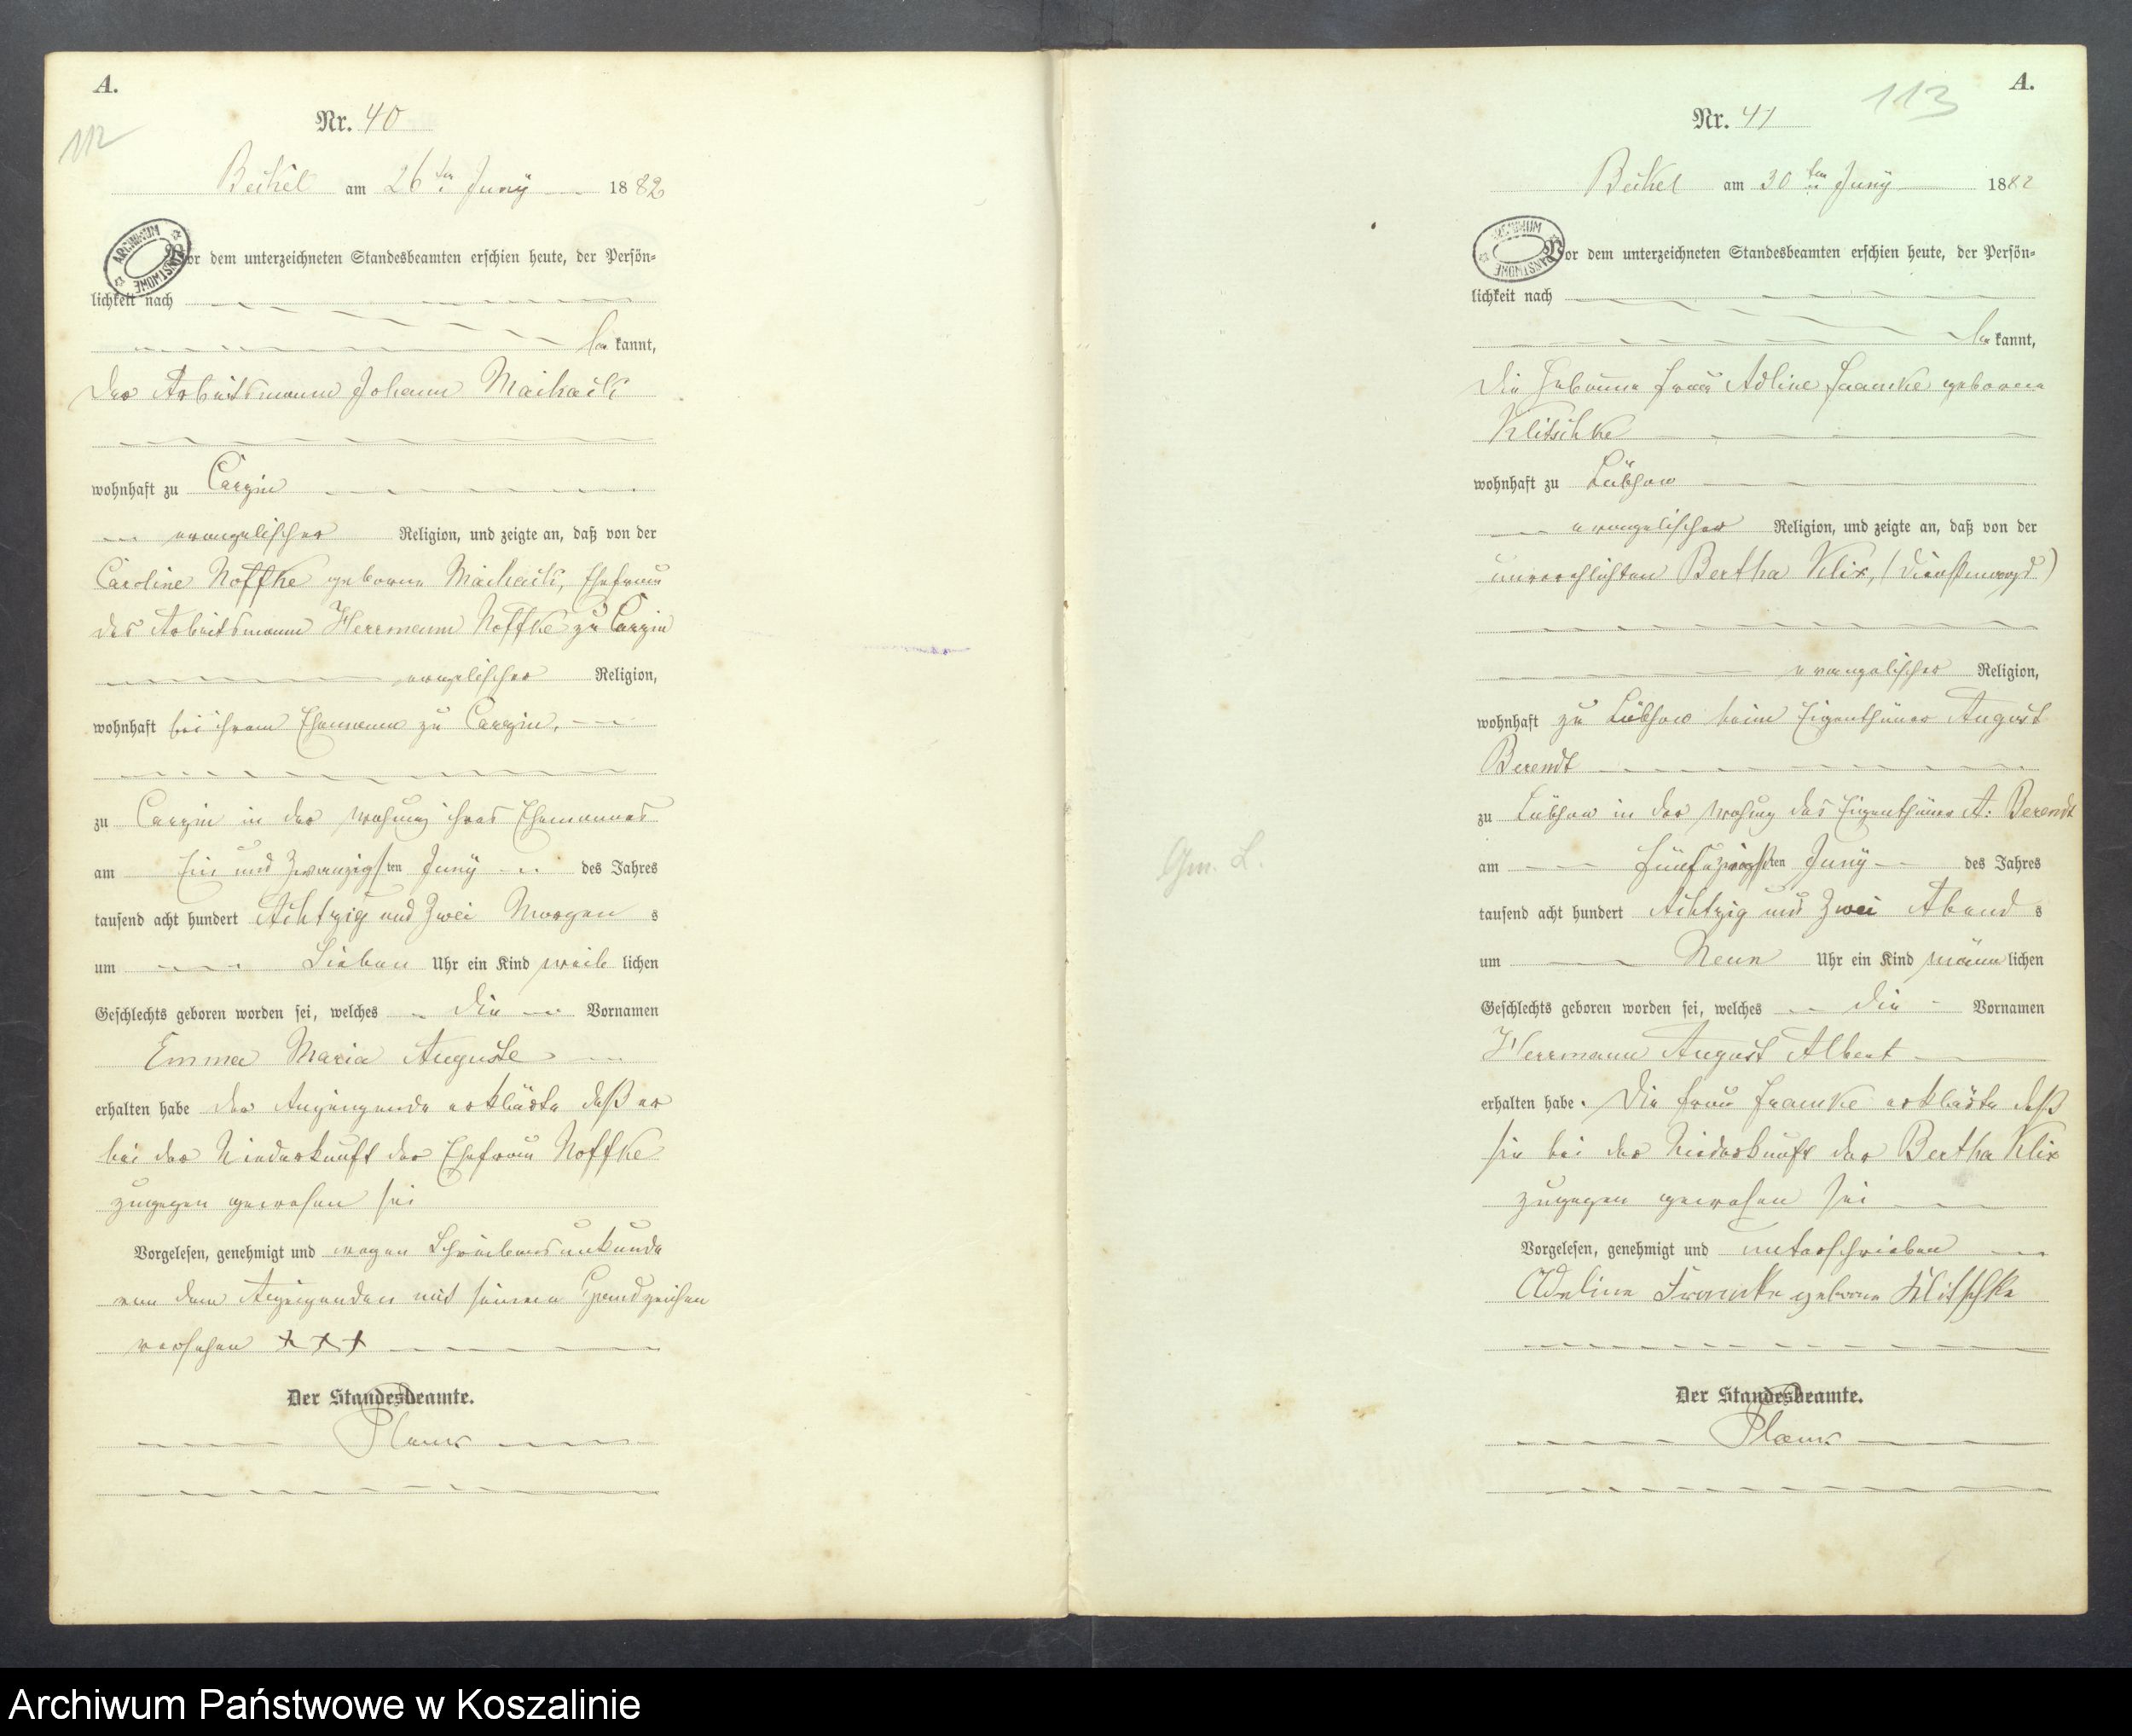 A.
112
Nr. 40
Beckel am 26ten Juny 1882
ARCHIWUM PAŃSTWOWE
Vor dem unterzeichneten Standesbeamten erschien heute, der Persön=
lichkeit nach
bekannt,
der Arbeitsmann Johann
wohnhaft zu Cargin
evangelischer Religion, und zeigte an, daß von der
Caroline Noffke geborne Ehefrau
des Arbeitsmann Herrmann Noffke zu Cargin
evangelischer Religion,
wohnhaft bei ihrem Ehemann zu Cargin,
zu Cargin in der Wohnung ihres Ehemannes
am Ein und Zwanzigsten Juny des Jahres
tausend acht hundert Achtzig und Zwei Morgens
um Sieben Uhr ein Kind weiblichen
Geschlechts geboren worden sei, welches die Vornamen
Emma Maria Auguste
erhalten habe der Anzeigende erklärte daß er
bei der Niederkunft der Ehefrau Noffke
zugegen gewesen sei
Vorgelesen, genehmigt und wegen Schreibensunkunde
von dem Anzeigenden mit seinem Handzeichen
versehen + + +
Der Standesbeamte.
A.
113
Nr. 41
Beckel am 30ten Juny 1882
ARCHIWUM PAŃSTWOWE
Vor dem unterzeichneten Standesbeamten erschien heute, der Persön=
lichkeit nach
bekannt,
die Hebamme Frau Adline Framke geborene
Klitschke
wohnhaft zu Lübzow
evangelischer Religion, und zeigte an, daß von der
unverehlichten Bertha Klix, (Dienstmagd)
evangelischer Religion,
wohnhaft zu Lübzow beim Eigenthümer August
Berendt
zu Lübzow in der Wohnung des Eigenthümer A. Berendt
am Juny des Jahres
tausend acht hundert Achtzig und Zwei Abends
um Neun Uhr ein Kind männlichen
Geschlechts geboren worden sei, welches die Vornamen
Herrmann August Albert
erhalten habe. Die Frau Framke erklärte daß
sie bei der Niederkunft der Bertha Klix
zugegen gewesen sei
Vorgelesen, genehmigt und unterschrieben
Adeline Framke geborne Klitschke
Der Standesbeamte.
Archiwum Państwowe w Koszalinie